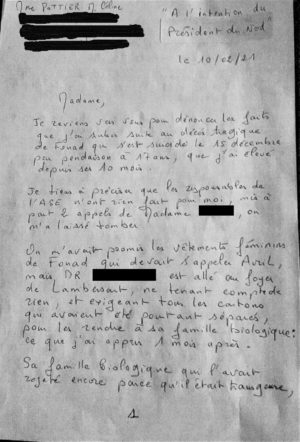 Mme POTTIER M. Céline
"A l'intention du
Président du Nord"
le 10/02/21
Madame,
Je reviens vers vous pour dénoncer les faits
que j'ai subis suite au décès tragique
de Fouad qui s'est suicidé le 15 décembre
par pendaison à 17 ans, que j'ai élevé
depuis ses 10 mois.
Je tiens à préciser que les responsables de
l'ASE n'ont rien fait pour moi, mis à
part 2 appels de Madame , on
m'a laissé tomber
On m'avait promis les vêtements féminins
de Fouad qui devait s'appeler Avril,
mais DR est allé au foyer
de Lambersart, ne tenant compte de
rien, et exigeant tous les cartons
qui avaient été pourtant séparés,
pour les rendre à sa famille biologique:
ce que j'ai appris 1 mois après.
Sa famille biologique qui l'avait
rejeté encore parce qu'il était transgenre,
1